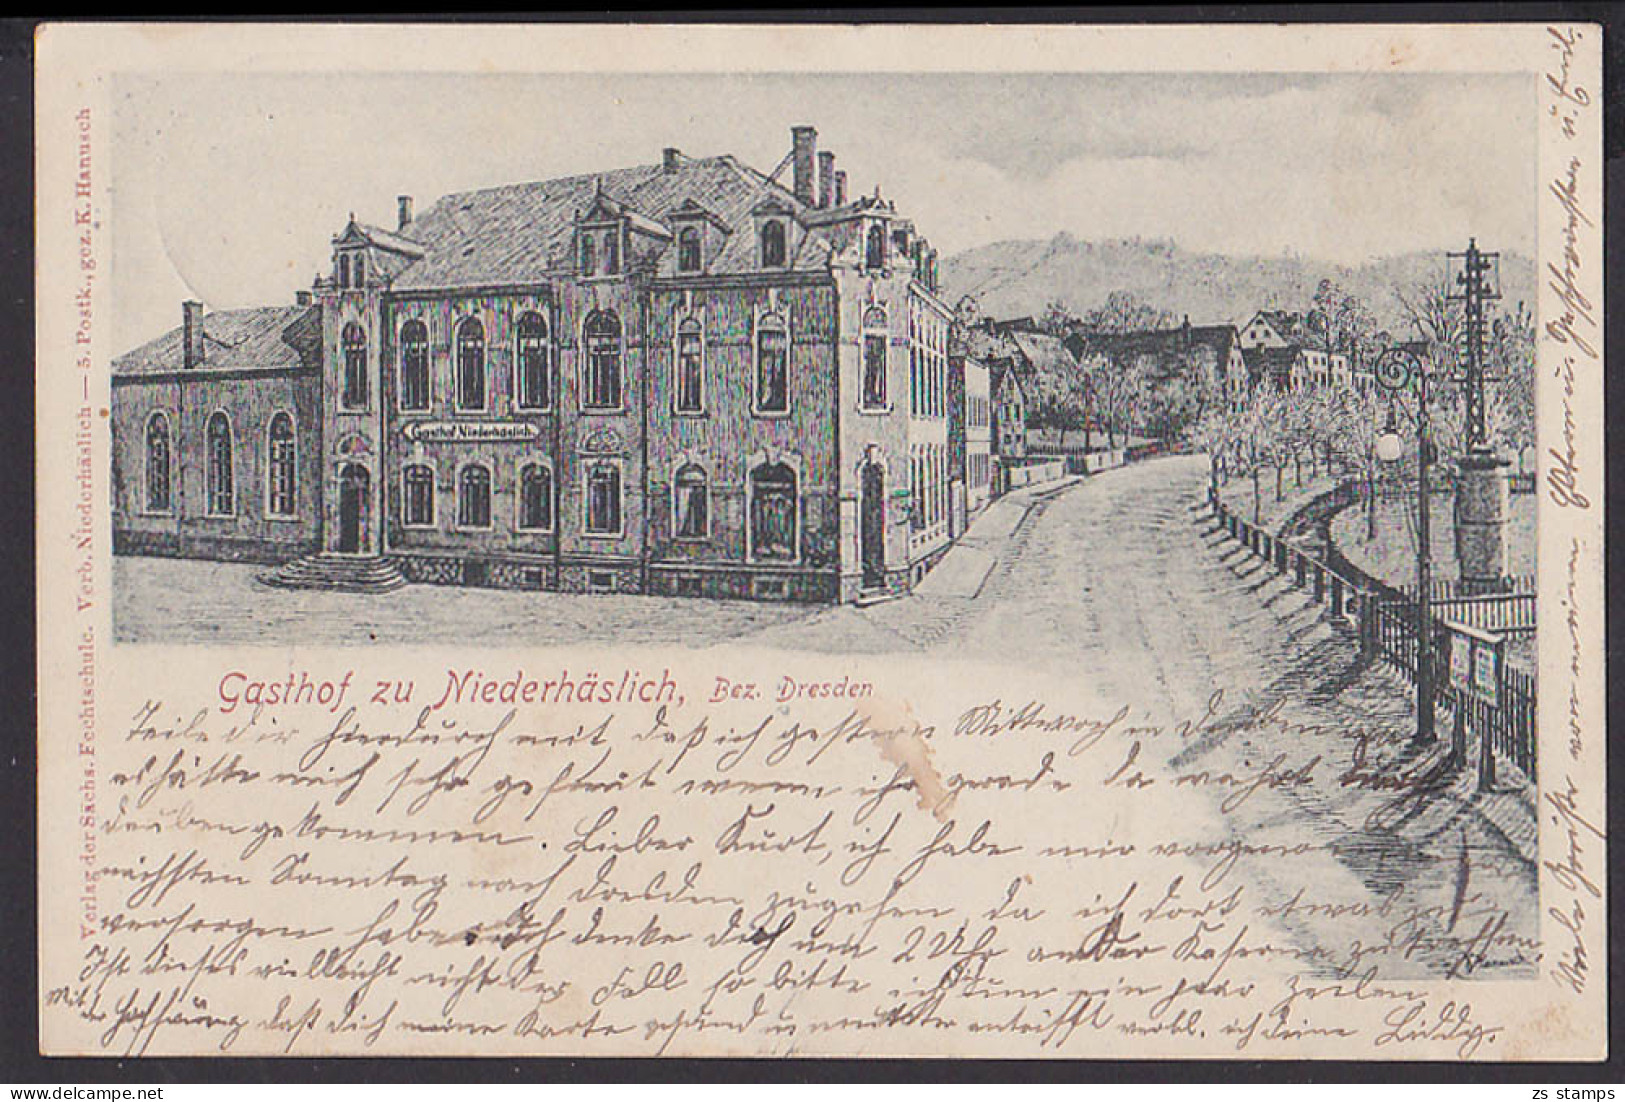 Verlag der Sächs. Fechtschule. Verb. Niederhäslich — 5. Postk., gez. K. Hanusch
Gasthof Niederhäslich
Gasthof zu Niederhäslich, Bez. Dresden
Teile dir hierdurch mit, daß ich gestern Mittwoch in Deuben war
es hätte mich sehr gefreut wenn ihr gerade da währt durch
deuben gekommen. Lieber Kurt, ich habe mir vorgeno
nächsten Sonntag nach Dresden zugehen, da ich dort etwas zu
versorgen habe. Ich denke dich um 2 Uhr an der Kaserne zu treffen.
Ist dieses vielleicht nicht der Fall so bitte ich um ein paar Zeilen
Mit der Hoffnung daß dich meine Karte gesund u munter antrifft verbl. ich deine Liddy.
Viele Grüße von meinen Eltern u. Geschwistern u.
zs stamps